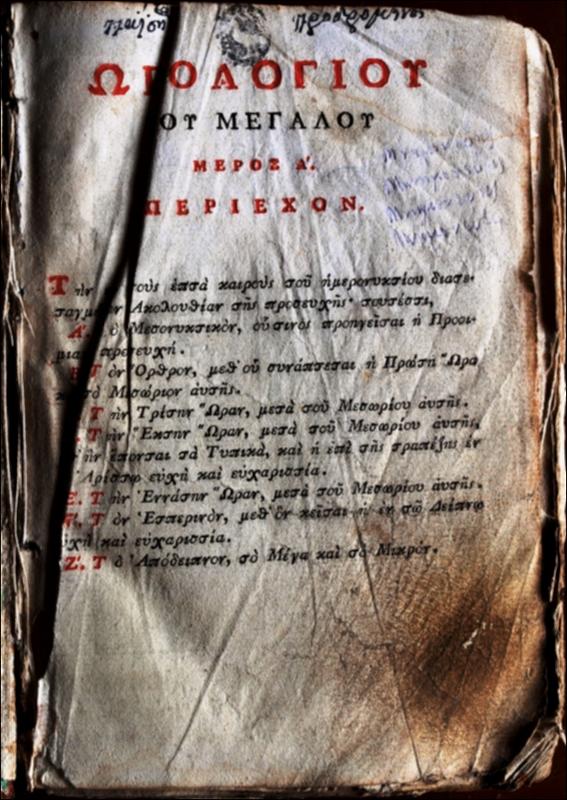 Προδρομ
ΩΡΟΛΟΓΙΟΥ
ΟΥ ΜΕΓΑΛΟΥ
ΜΕΡΟΣ Α'.
ΠΕΡΙΕΧΟΝ.
Τὴν τοὺς ἑπτὰ καιροὺς τοῦ ἡμερονυκτίου διατε-
ταγμένην Ἀκολουθίαν τῆς προσευχῆς· τουτέστι,
Α'. ὁ Μεσονυκτικὸν, οὗ τινος προηγεῖται ἡ Προοι-
μια προσευχή.
Β. Τὸν Ὄρθρον, μεθ' οὗ συνάπτεται ἡ Πρώτη Ὥρα
τὸ Μεσώριον αὐτῆς.
Τὴν Τρίτην Ὥραν, μετὰ τοῦ Μεσωρίου αὐτῆς.
Τὴν Ἕκτην Ὥραν, μετὰ τοῦ Μεσωρίου αὐτῆς,
ἣν ἕπονται τὰ Τυπικὰ, καὶ ἡ ἐπὶ τῆς τραπέζης ἐν
Ἀρίστῳ εὐχὴ καὶ εὐχαριστία.
Ε. Τὴν Ἐννάτην Ὥραν, μετὰ τοῦ Μεσωρίου αὐτῆς.
Ϛ. Τὸν Ἑσπερινὸν, μεθ' ὃν κεῖται ἡ ἐν τῷ Δείπνῳ
ὐχὴ καὶ εὐχαριστία.
Ζ'. Τὸ Ἀπόδειπνον, τὸ Μέγα καὶ τὸ Μικρόν.